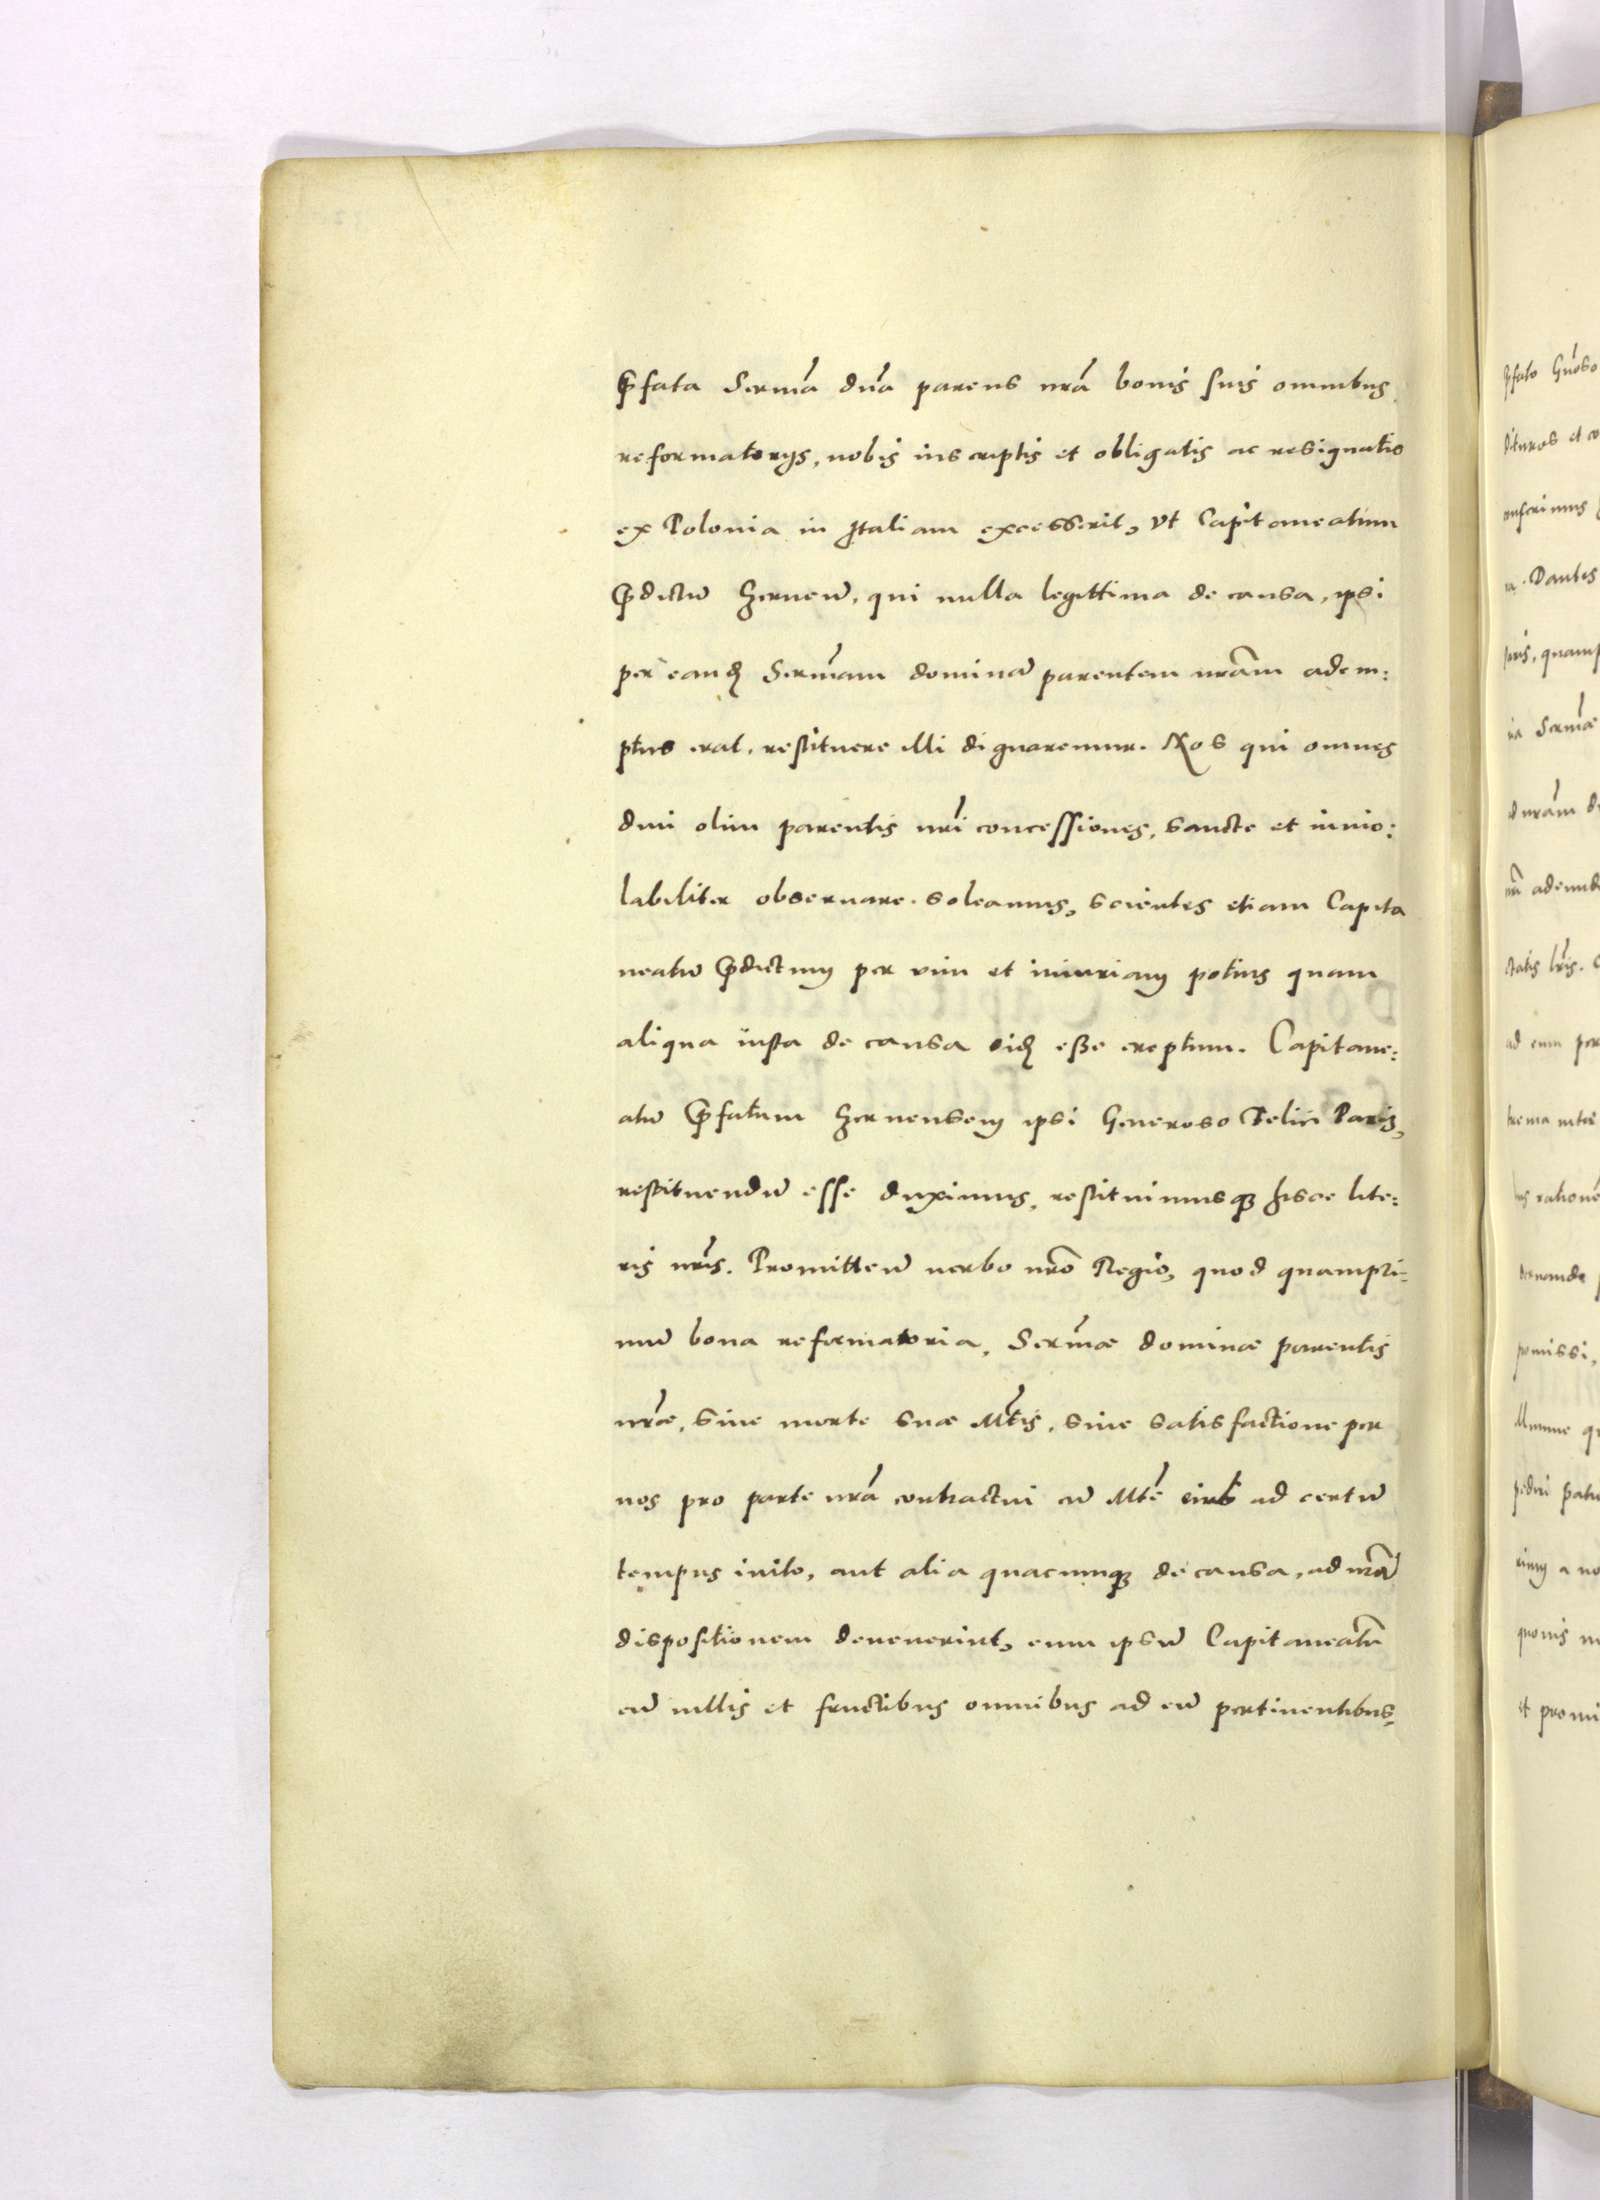 p̄fata Serma᷑ dn̄a parens nr̄a bonis suis omnibus
reformatorijs, nobis inscriptis et obligatis ac resignatis
ex Polonia in Italiam excesserit, vt Capitaneatum
p̄dictū Zerneū, qui nulla legittima de causa, ipsi
per eandꝫ Serm̄am dominā parentem nr̄am adem:
ptus erat, restituere illi dignaremur. Nos qui omnes
diui olim parentis nr̄i concessiones, sancte et inuio:
labiliter obseruare soleamus, scientes etiam Capita
neatū p̄dictum per vim et iniuriam potius quam
aliqua iusta de causa eidꝫ esse ereptum. Capitane:
atū p̄fatum Zernensem ipsi Generoso Felici Paris,
restituendū esse duximus, restituimusqꝫ hisce lite:
ris nr̄is. Promitteñ verbo nr̄o Regio, quod quampri:
mū bona reformatoria, Serm̄ae dominae parentis
nr̄ae, siue morte suae Mt̄is, siue satisfactione per
nos pro parte nr̄a contractui cū Mt̄e eius ad certū
tempus inito, aut alia quacunqꝫ de causa, ad nr̄ā
dispositionem deuenerint, eum ipsū Capitaneatū
cū villis et fructibus omnibus ad eū pertinentibus,